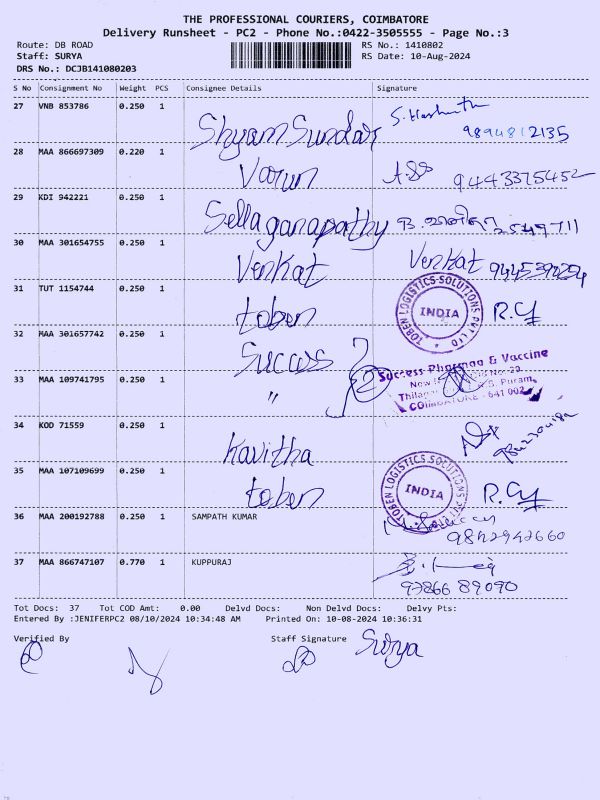 THE PROFESSIONAL COURIERS, COIMBATORE
Delivery Runsheet - PC2 - Phone No.:0422-3505555 - Page No.:3
Route: DB ROAD RS No.: 1410802
Staff: SURYA RS Date: 10-Aug-2024
DRS No.: DCJB141080203
S No Consignment No Weight PCS Consignee Details Signature
27 VNB 853786 0.250 1 Shyam Sundar 9894812135
28 MAA 866697309 0.220 1 Varun 9443375452
29 KDI 942221 0.250 1 Sellaganapathy 2549711
30 MAA 301654755 0.250 1 Venkat Venkat
31 TUT 1154744 0.250 1 toben TOBEN LOGISTICS SOLUTIONS PVT LTD INDIA
32 MAA 301657742 0.250 1 Success
Success Pharma & Vaccine
33 MAA 109741795 0.250 1 "
COIMBATORE - 641 002
34 KOD 71559 0.250 1 Kavitha
35 MAA 107109699 0.250 1 toben TOBEN LOGISTICS SOLUTIONS PVT LTD INDIA
36 MAA 200192788 0.250 1 SAMPATH KUMAR 9842942660
37 MAA 866747107 0.770 1 KUPPURAJ 97866 89090
Tot Docs: 37 Tot COD Amt: 0.00 Delvd Docs: Non Delvd Docs: Delvy Pts:
Entered By :JENIFERPC2 08/10/2024 10:34:48 AM Printed On: 10-08-2024 10:36:31
Verified By Staff Signature Surya